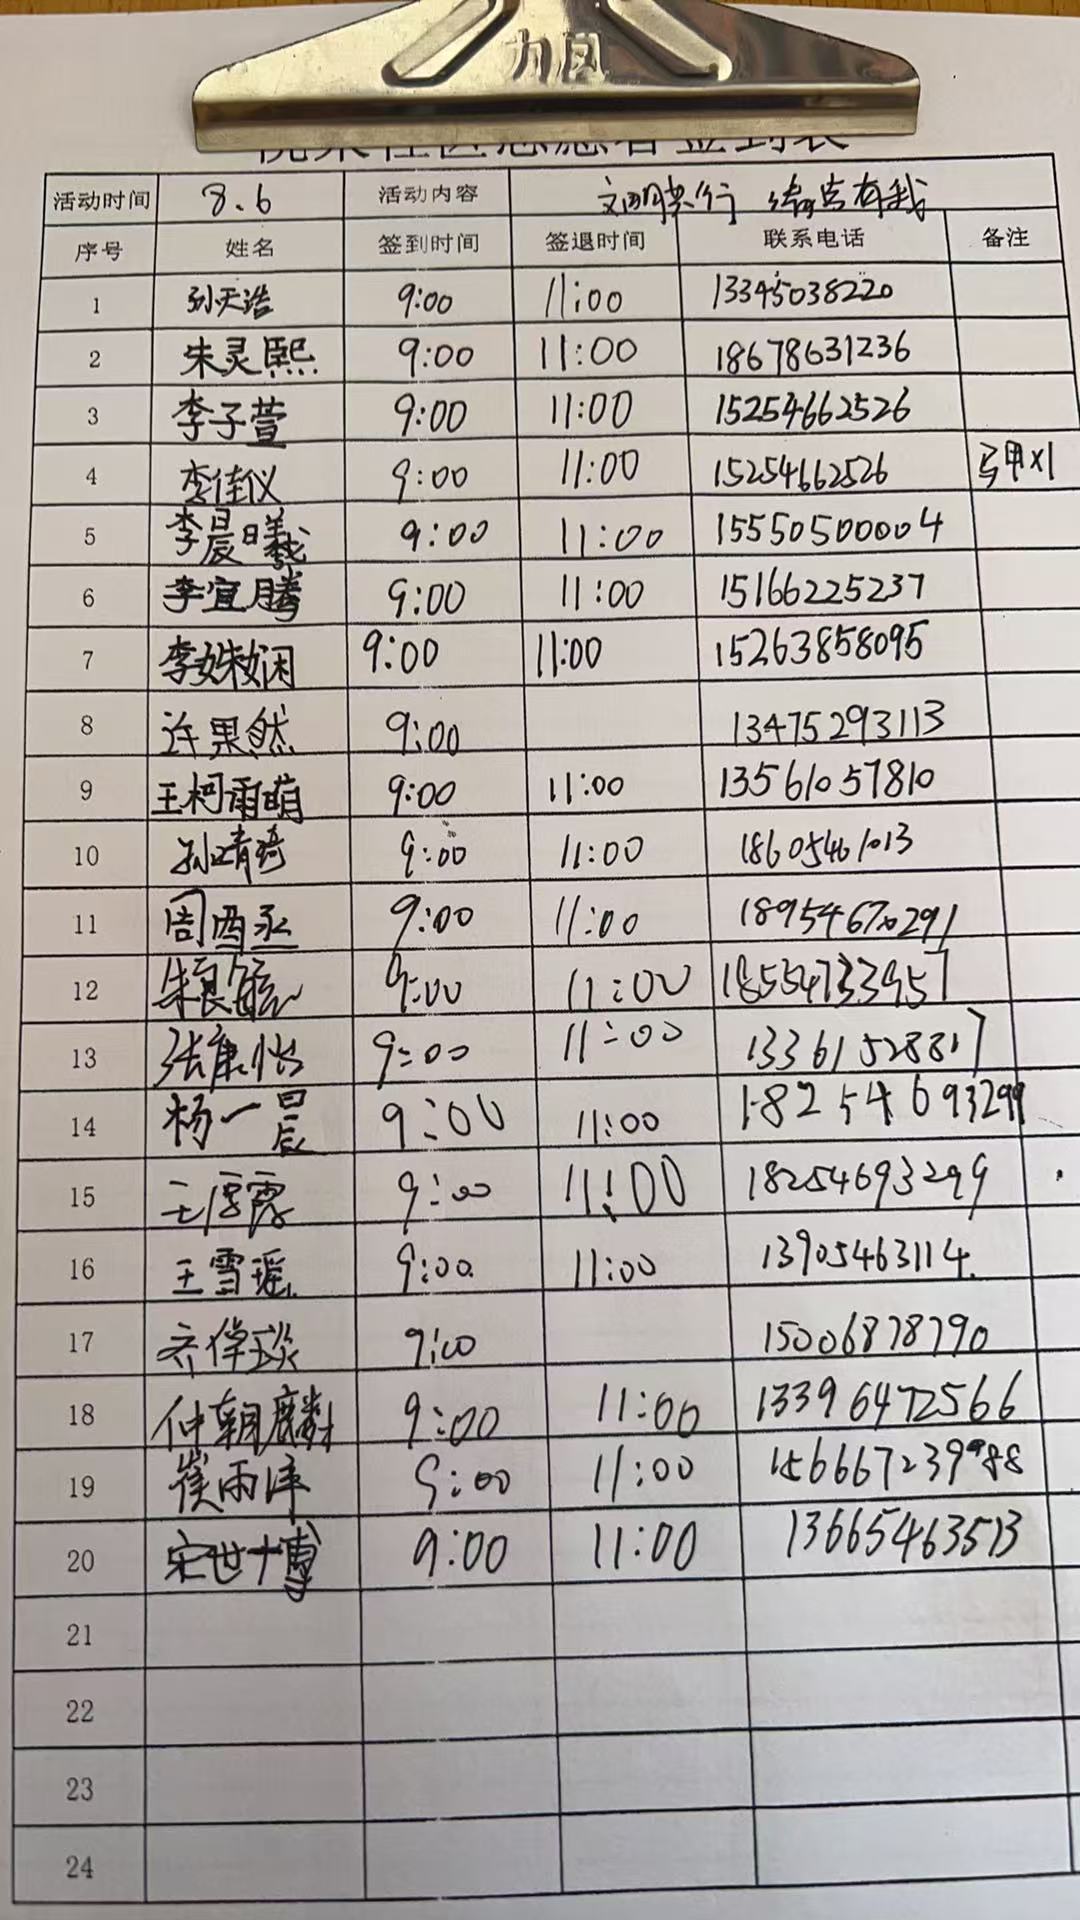 九凤
社区志愿者签到表
活动时间 8.6 活动内容 文明 行 有我
序号 姓名 签到时间 签退时间 联系电话 备注
1 孙天浩 9:00 11:00 13345038220
2 朱灵熙 9:00 11:00 18678631236
3 李子萱 9:00 11:00 15254662526
4 李佳仪 9:00 11:00 15254662526 马甲x1
5 李晨曦 9:00 11:00 15550500004
6 李宜腾 9:00 11:00 15166225237
7 李姝娴 9:00 11:00 15263858095
8 许果然 9:00 13475293113
9 王柯雨萌 9:00 11:00 13561057810
10 孙靖琦 9:00 11:00 18605461013
11 周西丞 9:00 11:00 18954670291
12 朱良毓 9:00 11:00 18554733957
13 张康怡 9:00 11:00 13361528817
14 杨一晨 9:00 11:00 18254693299
15 王 露 9:00 11:00 18254693299
16 王雪瑶 9:00 11:00 13905463114
17 齐倬琰 9:00 15006878790
18 仲朝麟 9:00 11:00 13396472566
19 崔雨泽 9:00 11:00
20 宋世博 9:00 11:00 13665463513
21
22
23
24